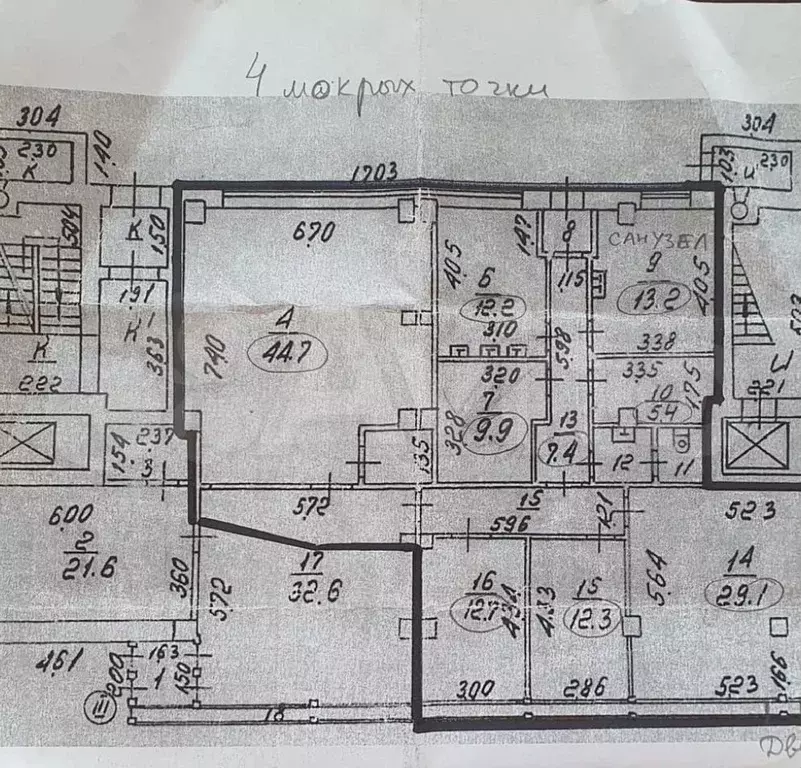 4 мокрых точки
304
140
2.30
К
1703
304
103
2.30
и
504
К
150
670
405
147
8
САНУЗЕЛ
6
12.2
115
9
13.2
405
191
К'
363
740
4
44.7
310
598
338
503
К
222
320
335
175
10
5.4
221
154
237
3
135
328
7
9.9
13
7.4
12
11
600
572
15
596
121
523
2
21.6
360
572
17
32.6
16
12.7
434
433
15
12.3
564
14
29.1
461
200
163
1
150
300
286
523
166
III
18